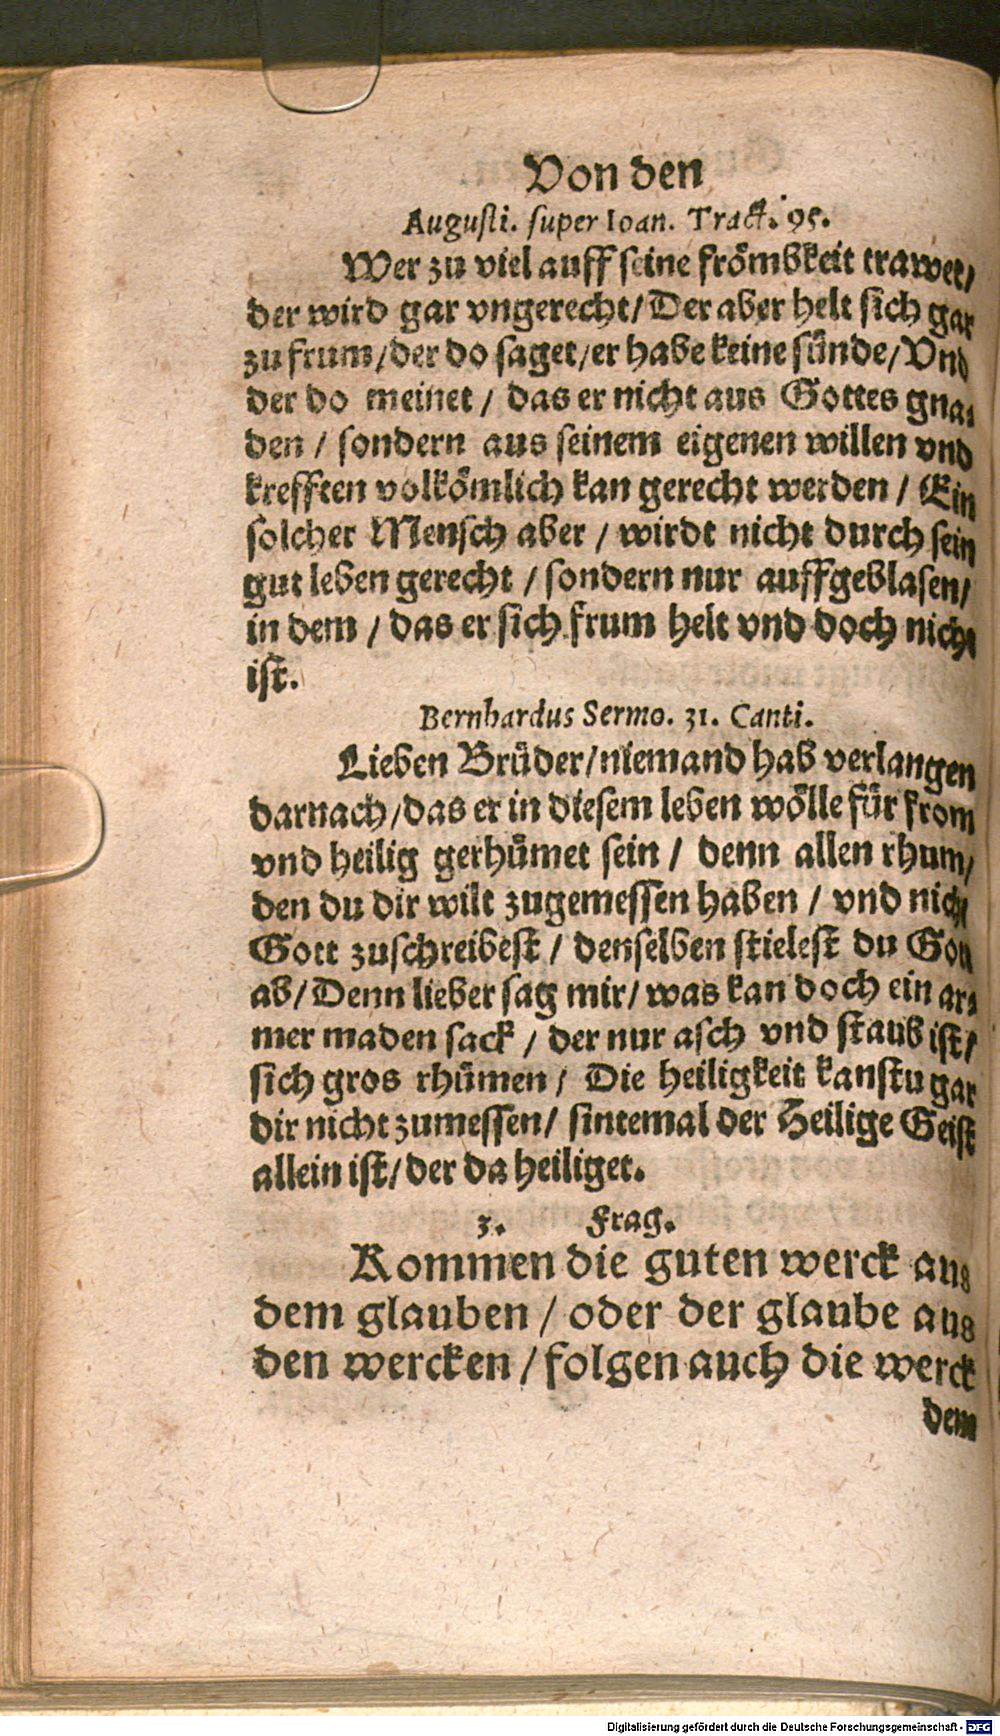 Von den
Augusti. super Ioan. Tract. 95.
Wer zu viel auff seine frömbkeit trawet/
der wird gar vngerecht/Der aber helt sich gar
zu frum/der do saget/er habe keine sünde/Vnd
der do meinet / das er nicht aus Gottes gna-
den / sondern aus seinem eigenen willen vnd
krefften volkömlich kan gerecht werden / Ein
solcher Mensch aber / wirdt nicht durch sein
gut leben gerecht / sondern nur auffgeblasen/
in dem / das er sich frum helt vnd doch nicht
ist.
Bernhardus Sermo. 31. Canti.
Lieben Brüder/niemand hab verlangen
darnach/das er in diesem leben wölle für from
vnd heilig gerhümet sein / denn allen rhum/
den du dir wilt zugemessen haben / vnd nicht
Gott zuschreibest / denselben stielest du Gott
ab/Denn lieber sag mir/was kan doch ein ar-
mer maden sack / der nur asch vnd staub ist/
sich gros rhümen / Die heiligkeit kanstu gar
dir nicht zumessen/ sintemal der Heilige Geist
allein ist/der da heiliget.
3. Frag.
Kommen die guten werck aus
dem glauben / oder der glaube aus
den wercken / folgen auch die werck
dem
Digitalisierung gefördert durch die Deutsche Forschungsgemeinschaft - DFG